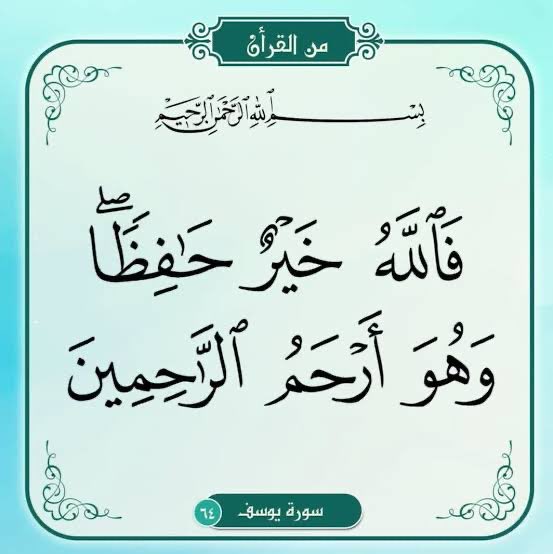 من القرآن
بِسْمِ ٱللَّهِ ٱلرَّحْمَٰنِ ٱلرَّحِيمِ
فَٱللَّهُ خَيْرٌ حَٰفِظًۭا ۖ
وَهُوَ أَرْحَمُ ٱلرَّٰحِمِينَ
سورة يوسف ٦٤